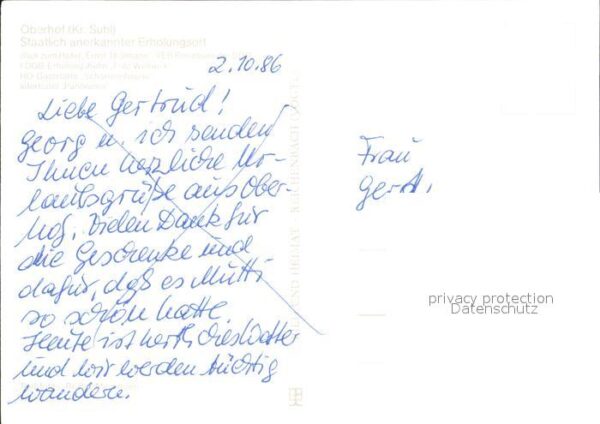 Oberhof (Kr. Suhl)
Staatlich anerkannter Erholungsort
2.10.86
Liebe Gertrud!
Georg u. ich senden
Ihnen herzliche Ur-
laubsgrüße aus Ober-
hof. Vielen Dank für
die Geschenke und
dafür, daß es Mutti
so schön hatte.
Heute ist herrliches Wetter
und wir werden tüchtig
wandern.
Frau
Gert.
privacy protection
Datenschutz